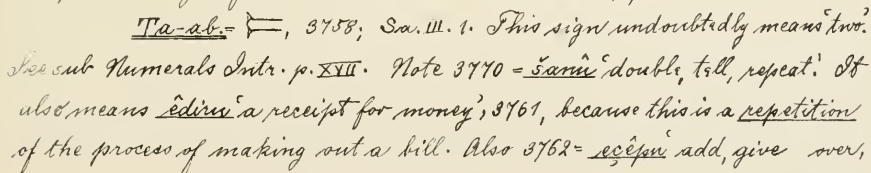 Ta-ab. = 𒋰, 3758; Sa. III. 1. This sign undoubtedly means 'two'.
See sub Numerals Intr. p. XVII. Note 3770 = šanû 'double, tell, repeat'. It
also means êdiru 'a receipt for money', 3761, because this is a repetition
of the process of making out a bill. Also 3762 = eçêpu add, give over,